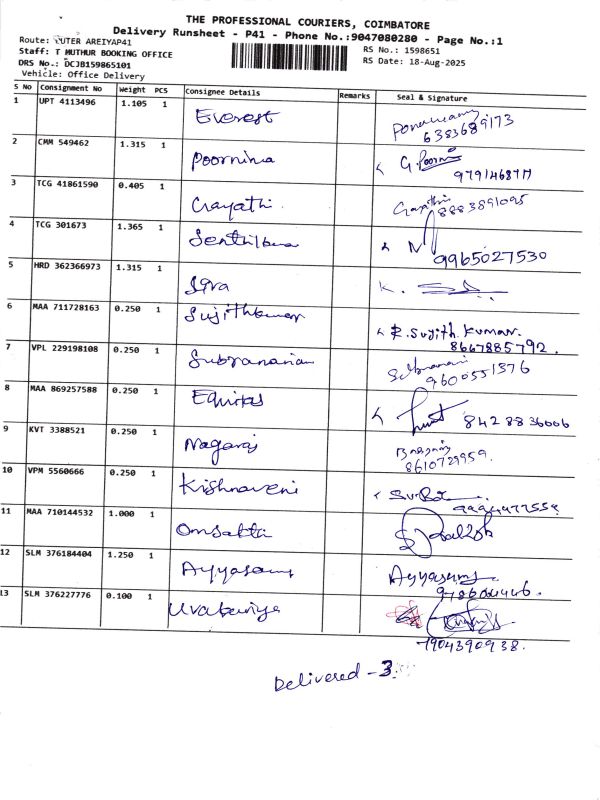 THE PROFESSIONAL COURIERS, COIMBATORE
Delivery Runsheet - P41 - Phone No.:9047080280 - Page No.:1
Route: OUTER AREIYAP41
RS No.: 1598651
Staff: T MUTHUR BOOKING OFFICE
RS Date: 18-Aug-2025
DRS No.: DCJB159865101
Vehicle: Office Delivery
S No Consignment No Weight PCS Consignee Details Remarks Seal & Signature
1 UPT 4113496 1.105 1 Everest 6383689173
2 CMM 549462 1.315 1 Poornima G. Poorni
3 TCG 41861590 0.405 1 Gayathi Gayathri 8883891095
4 TCG 301673 1.365 1 Senthilkumar 9965027530
5 HRD 362366973 1.315 1 Siva K.
6 MAA 711728163 0.250 1 Sujithkumar R. Sujith kumar.
8667885792.
7 VPL 229198108 0.250 1 Subramanian
9600551376
8 MAA 869257588 0.250 1 Equitas 8428836006
9 KVT 3388521 0.250 1 Nagaraj
8610729959.
10 VPM 5560666 0.250 1 Krishnaveni
11 MAA 710144532 1.000 1 Omsakthi
12 SLM 376184404 1.250 1 Ayyasamy Ayyasamy
13 SLM 376227776 0.100 1
7904390938.
Delivered - 3